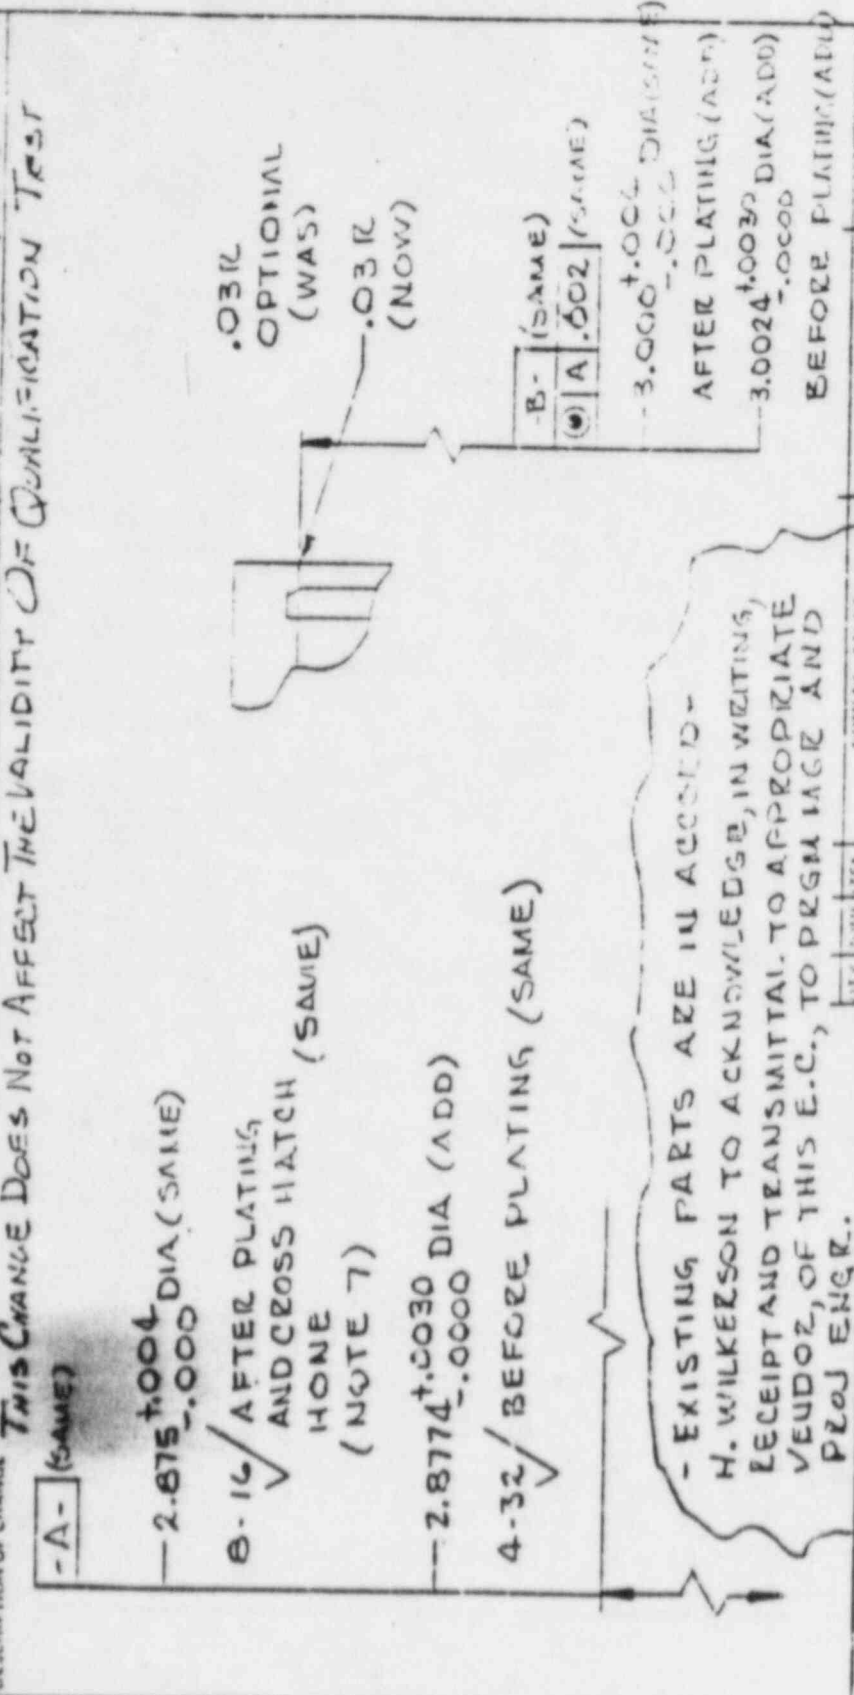 THIS CHANGE DOES NOT AFFECT THE VALIDITY OF QUALIFICATION TEST
-A- (SAME)
2.875 +.004 -.000 DIA (SAME)
8-16 AFTER PLATING
AND CROSS HATCH (SAME)
HONE
(NOTE 7)
2.8774 +.0030 -.0000 DIA (ADD)
4-32 BEFORE PLATING (SAME)
.03R
OPTIONAL
(WAS)
.03R
(NOW)
-B- (SAME)
A .002 (SAME)
3.000 DIA (SAME)
AFTER PLATING (ADD)
3.0024 +.0030 -.0000 DIA (ADD)
BEFORE PLATING (ADD)
- EXISTING PARTS ARE IN ACCORD-
H. WILKERSON TO ACKNOWLEDGE, IN WRITING,
RECEIPT AND TRANSMITTAL TO APPROPRIATE
VENDOR, OF THIS E.C., TO PRGM MGR AND
PROJ ENGR.